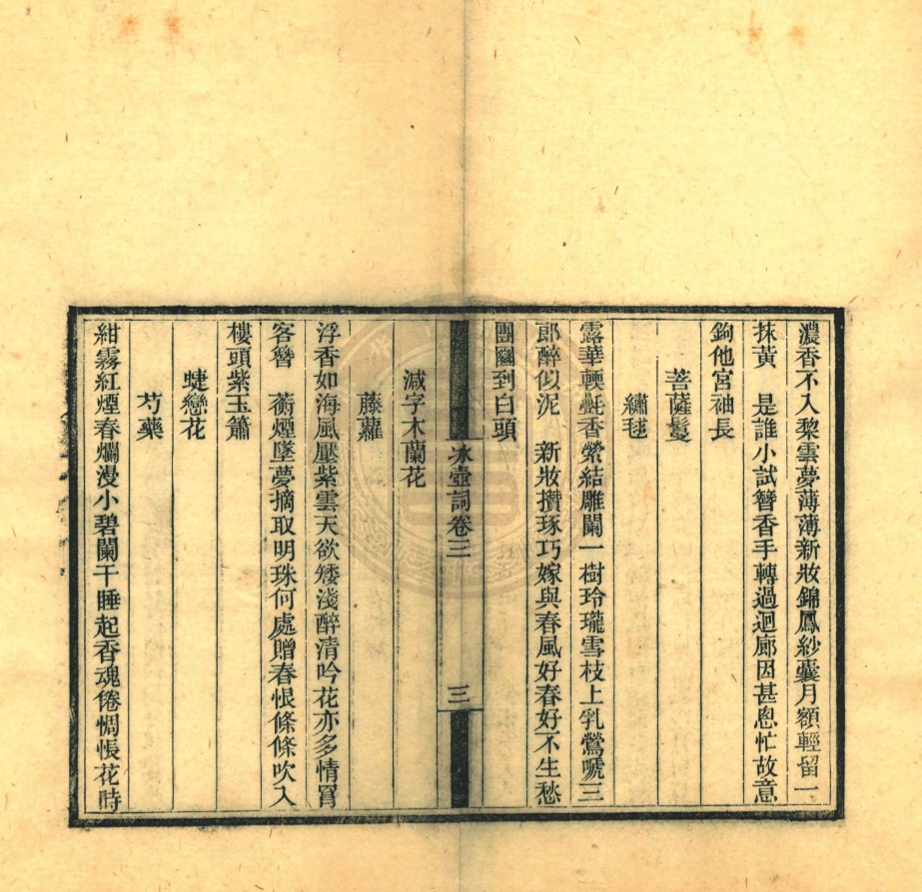 濃香不入黎雲夢薄薄新妝錦鳳紗囊月額輕留一
抹黃　是誰小試簪香手轉過迴廊因甚恖忙故意
鉤他宮袖長
菩薩鬘
繡毬
露華輭毾香縈結雕闌一樹玲瓏雪枝上乳鶯嗁三
郎醉似泥　新妝攢琢巧嫁與春風好春好不生愁
團圞到白頭
冰壺詞卷三
三
減字木蘭花
藤蘿
浮香如海風壓紫雲天欲矮淺醉清吟花亦多情罥
客簪　蘅煙墜夢摘取明珠何處贈春恨條條吹入
樓頭紫玉簫
蜨戀花
芍藥
紺霧紅煙春爛漫小碧闌干睡起香魂倦惆悵花時